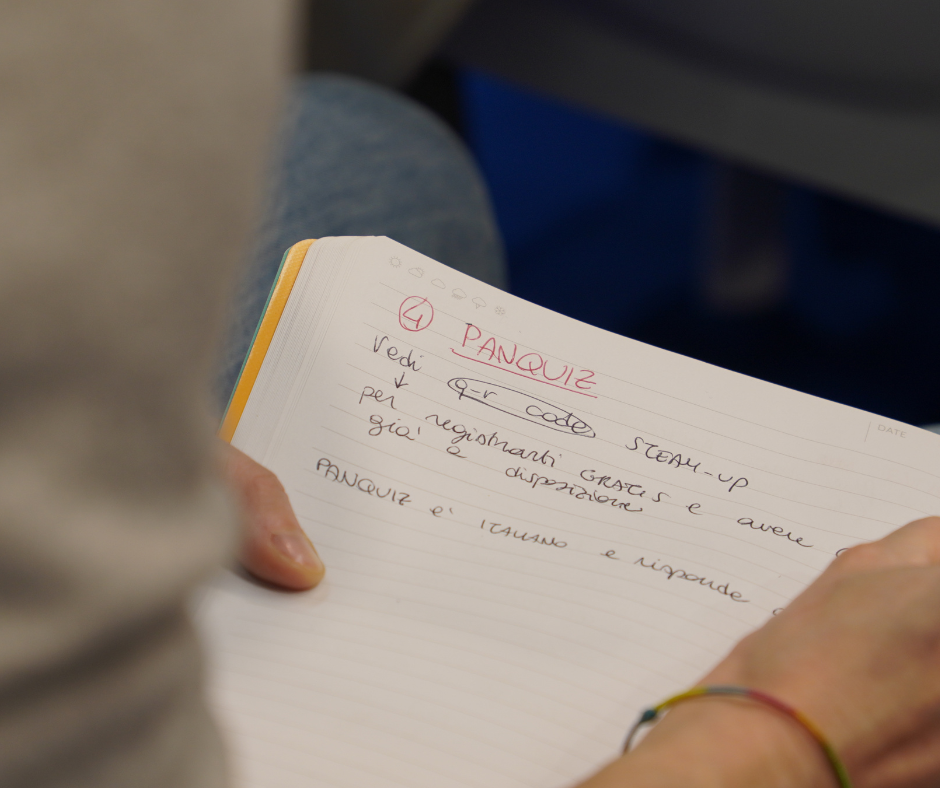 ④ PANQUIZ
Vedi q-r code STEAM-UP
↓
per registrarti GRATIS e avere
già a disposizione
PANQUIZ e' ITALIANO e risponde
DATE